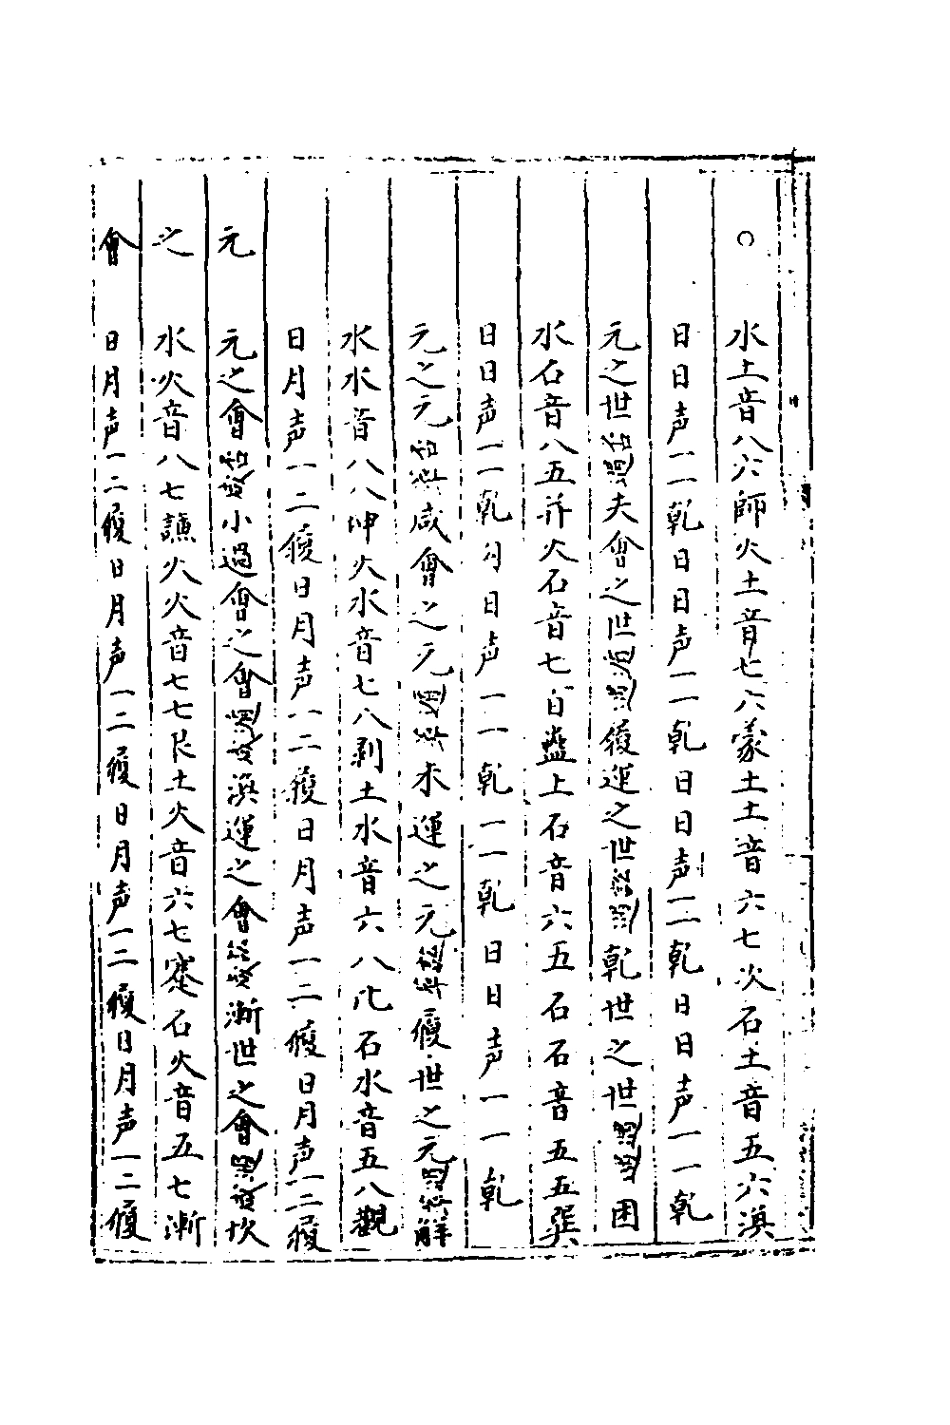 ○ 水土音八六師火土音七六蒙土土音六七次石土音五六渙
日日声一一乾日日声一一乾日日声一一乾日日声一一乾
元之世夬會之世履運之世乾世之世困
水石音八五井火石音七百蛊上石音六五石石音五五巽
日日声一一乾日日声一一乾一一乾日日声一一乾
元之元咸會之元未運之元履世之元解
水水音八八坤火水音七八剥土水音六八比石水音五八觀
日月声一二履日月声一二履日月声一二履日月声一二履
元 元之會小過會之會渙運之會漸世之會坎
之 水火音八七謙火火音七七艮土火音六七蹇石火音五七漸
會 日月声一二履日月声一二履日月声一二履日月声一二履